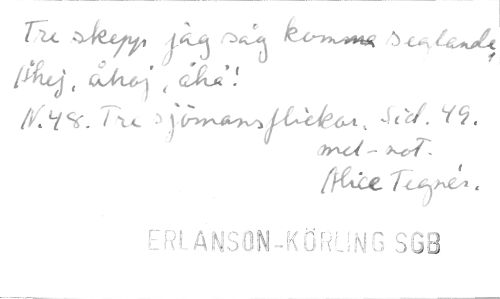 Tre skepp jag såg komma seglande,
Åhej, åhoj, åhå!
N.48. Tre sjömansflickor. Sid. 49.
mel-not.
Alice Tegnér.
ERLANSON-KÖRLING SGB